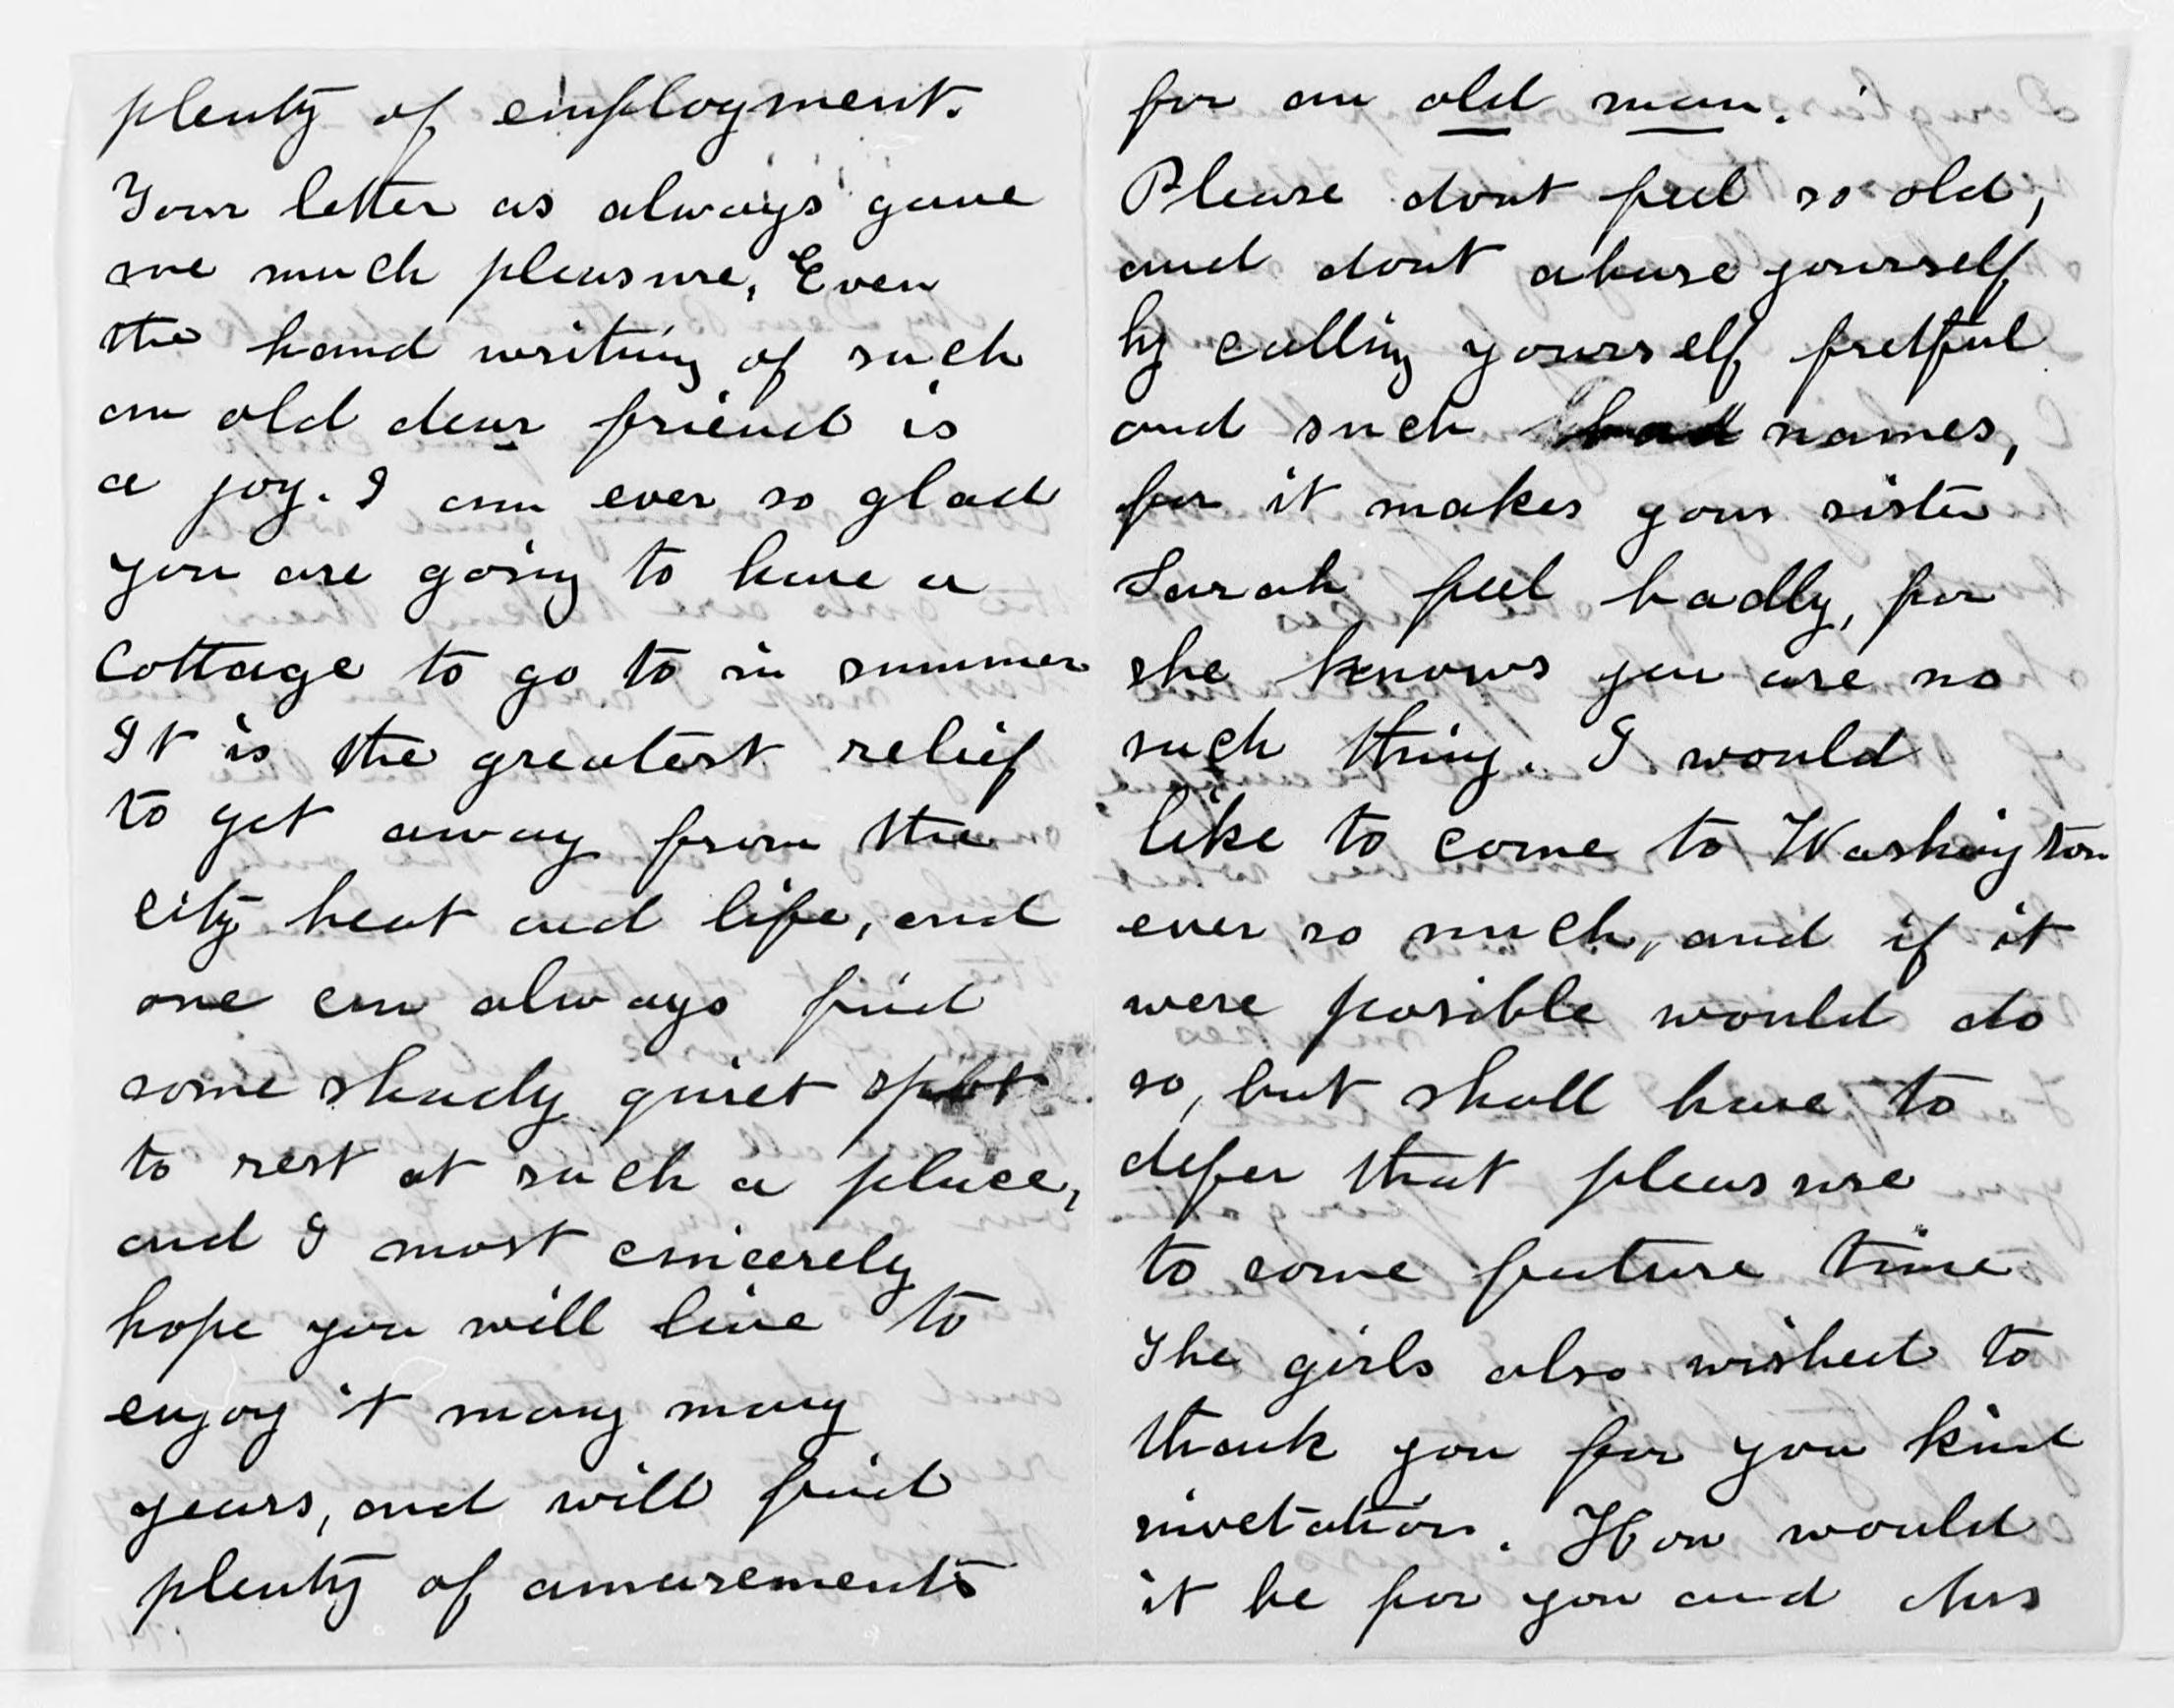 plenty of employment.
Your letter as always gave
me much pleasure, Even
the hand writing of such
an old dear friend is
a joy. I am ever so glad
you are going to have a
Cottage to go to in summer
It is the greatest relief
to get away from the
city heat and life, and
one can always find
some shady quiet spot
to rest at such a place,
and I most cincerely
hope you will live to
enjoy it many many
years, and will find
plenty of amusements
for an old man.
Please dont feel so old,
and dont abuse yourself
by calling yourself fretful
and such bad names,
for it makes your sister
Sarah feel badly, for
she knows you are no
such thing. I would
like to come to Washington
ever so much, and if it
were posible would do
so, but shall have to
defer that pleasure
to some future time
The girls also wished to
thank you for you kind
invetation. How would
it be for you and Mrs